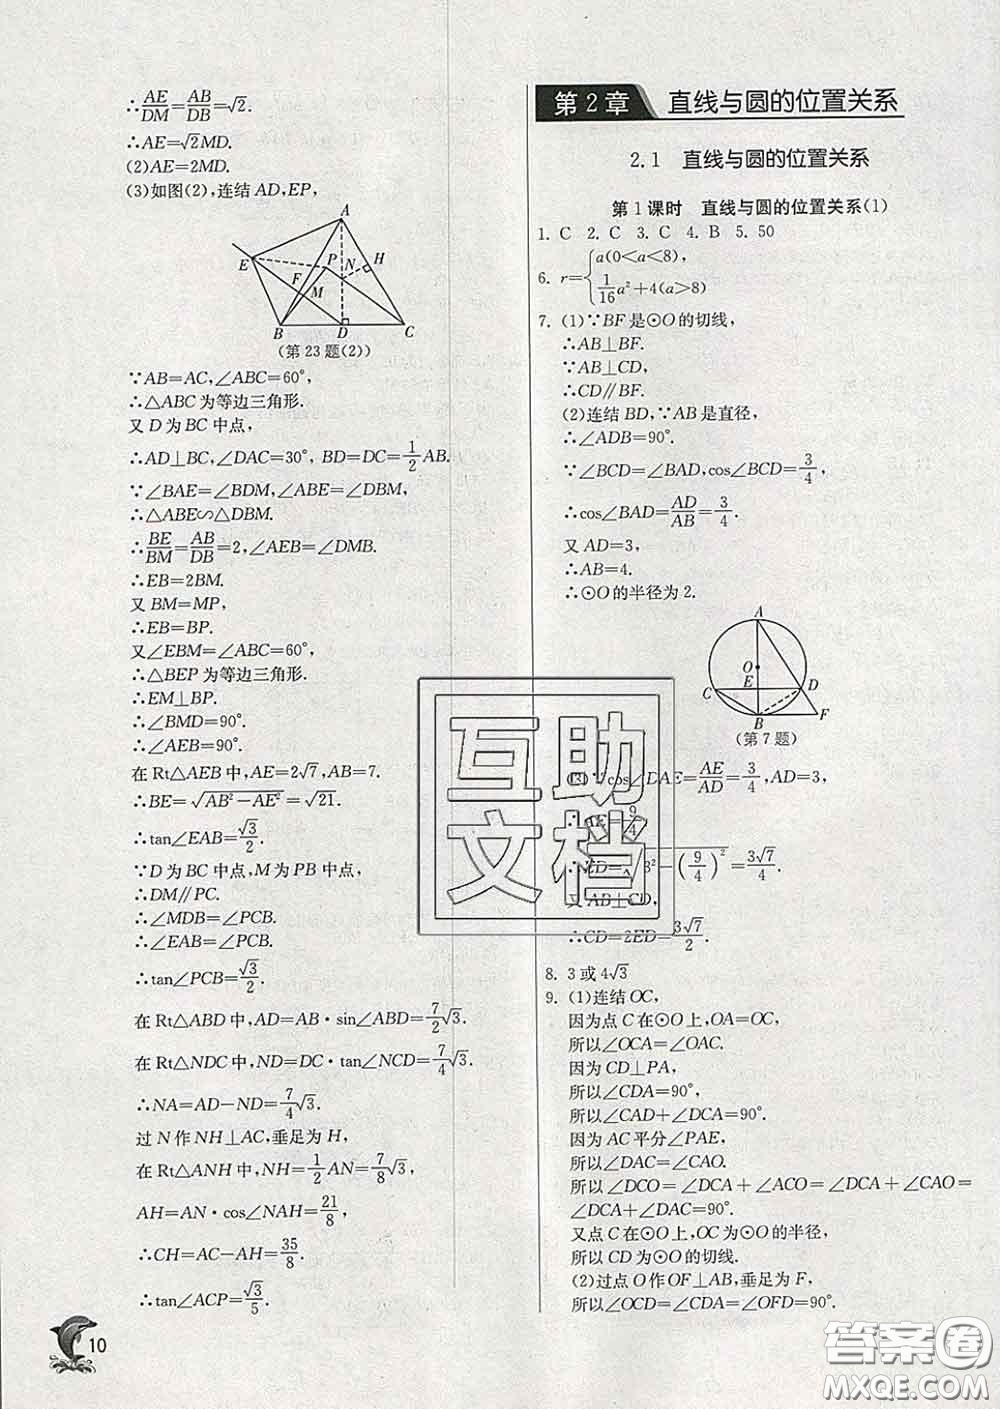 ∴AE/DM=AB/DB=√2.
∴AE=√2MD.
(2)AE=2MD.
(3)如图(2),连结AD,EP,
A
E
P
N
H
F
M
B
D
C
(第23题(2))
∵AB=AC,∠ABC=60°,
∴△ABC为等边三角形.
又D为BC中点,
∴AD⊥BC,∠DAC=30°, BD=DC=1/2AB.
∵∠BAE=∠BDM,∠ABE=∠DBM,
∴△ABE∽△DBM.
∴BE/BM=AB/DB=2,∠AEB=∠DMB.
∴EB=2BM.
又BM=MP,
∴EB=BP.
又∠EBM=∠ABC=60°,
∴△BEP为等边三角形.
∴EM⊥BP.
∴∠BMD=90°.
∴∠AEB=90°.
在Rt△AEB中,AE=2√7,AB=7.
∴BE=√(AB²-AE²)=√21.
∴tan∠EAB=√3/2.
∵D为BC中点,M为PB中点,
∴DM∥PC.
∴∠MDB=∠PCB.
∴∠EAB=∠PCB.
∴tan∠PCB=√3/2.
在Rt△ABD中,AD=AB·sin∠ABD=7/2√3.
在Rt△NDC中,ND=DC·tan∠NCD=7/4√3.
∴NA=AD-ND=7/4√3.
过N作NH⊥AC,垂足为H,
在Rt△ANH中,NH=1/2AN=7/8√3,
AH=AN·cos∠NAH=21/8,
∴CH=AC-AH=35/8.
∴tan∠ACP=√3/5.
10
第2章 直线与圆的位置关系
2.1 直线与圆的位置关系
第1课时 直线与圆的位置关系(1)
1. C 2. C 3. C 4. B 5. 50
6. r={a(0<a<8),
1/16a²+4(a>8)
7. (1)∵BF是⊙O的切线,
∴AB⊥BF.
∵AB⊥CD,
∴CD∥BF.
(2)连结BD,∵AB是直径,
∴∠ADB=90°.
∵∠BCD=∠BAD,cos∠BCD=3/4,
∴cos∠BAD=AD/AB=3/4.
又AD=3,
∴AB=4.
∴⊙O的半径为2.
A
O
E
C
D
B
F
(第7题)
(3)∵cos∠DAE=AE/AD=3/4,AD=3,
∴AE=9/4.
∴ED=√(3²-(9/4)²)=3√7/4.
又AB⊥CD,
∴CD=2ED=3√7/2.
8. 3或4√3
9. (1)连结OC,
因为点C在⊙O上,OA=OC,
所以∠OCA=∠OAC.
因为CD⊥PA,
所以∠CDA=90°.
所以∠CAD+∠DCA=90°.
因为AC平分∠PAE,
所以∠DAC=∠CAO.
所以∠DCO=∠DCA+∠ACO=∠DCA+∠CAO=
∠DCA+∠DAC=90°.
又点C在⊙O上,OC为⊙O的半径,
所以CD为⊙O的切线.
(2)过点O作OF⊥AB,垂足为F,
所以∠OCD=∠CDA=∠OFD=90°.
互助
文档
答案圈
MXQE.COM